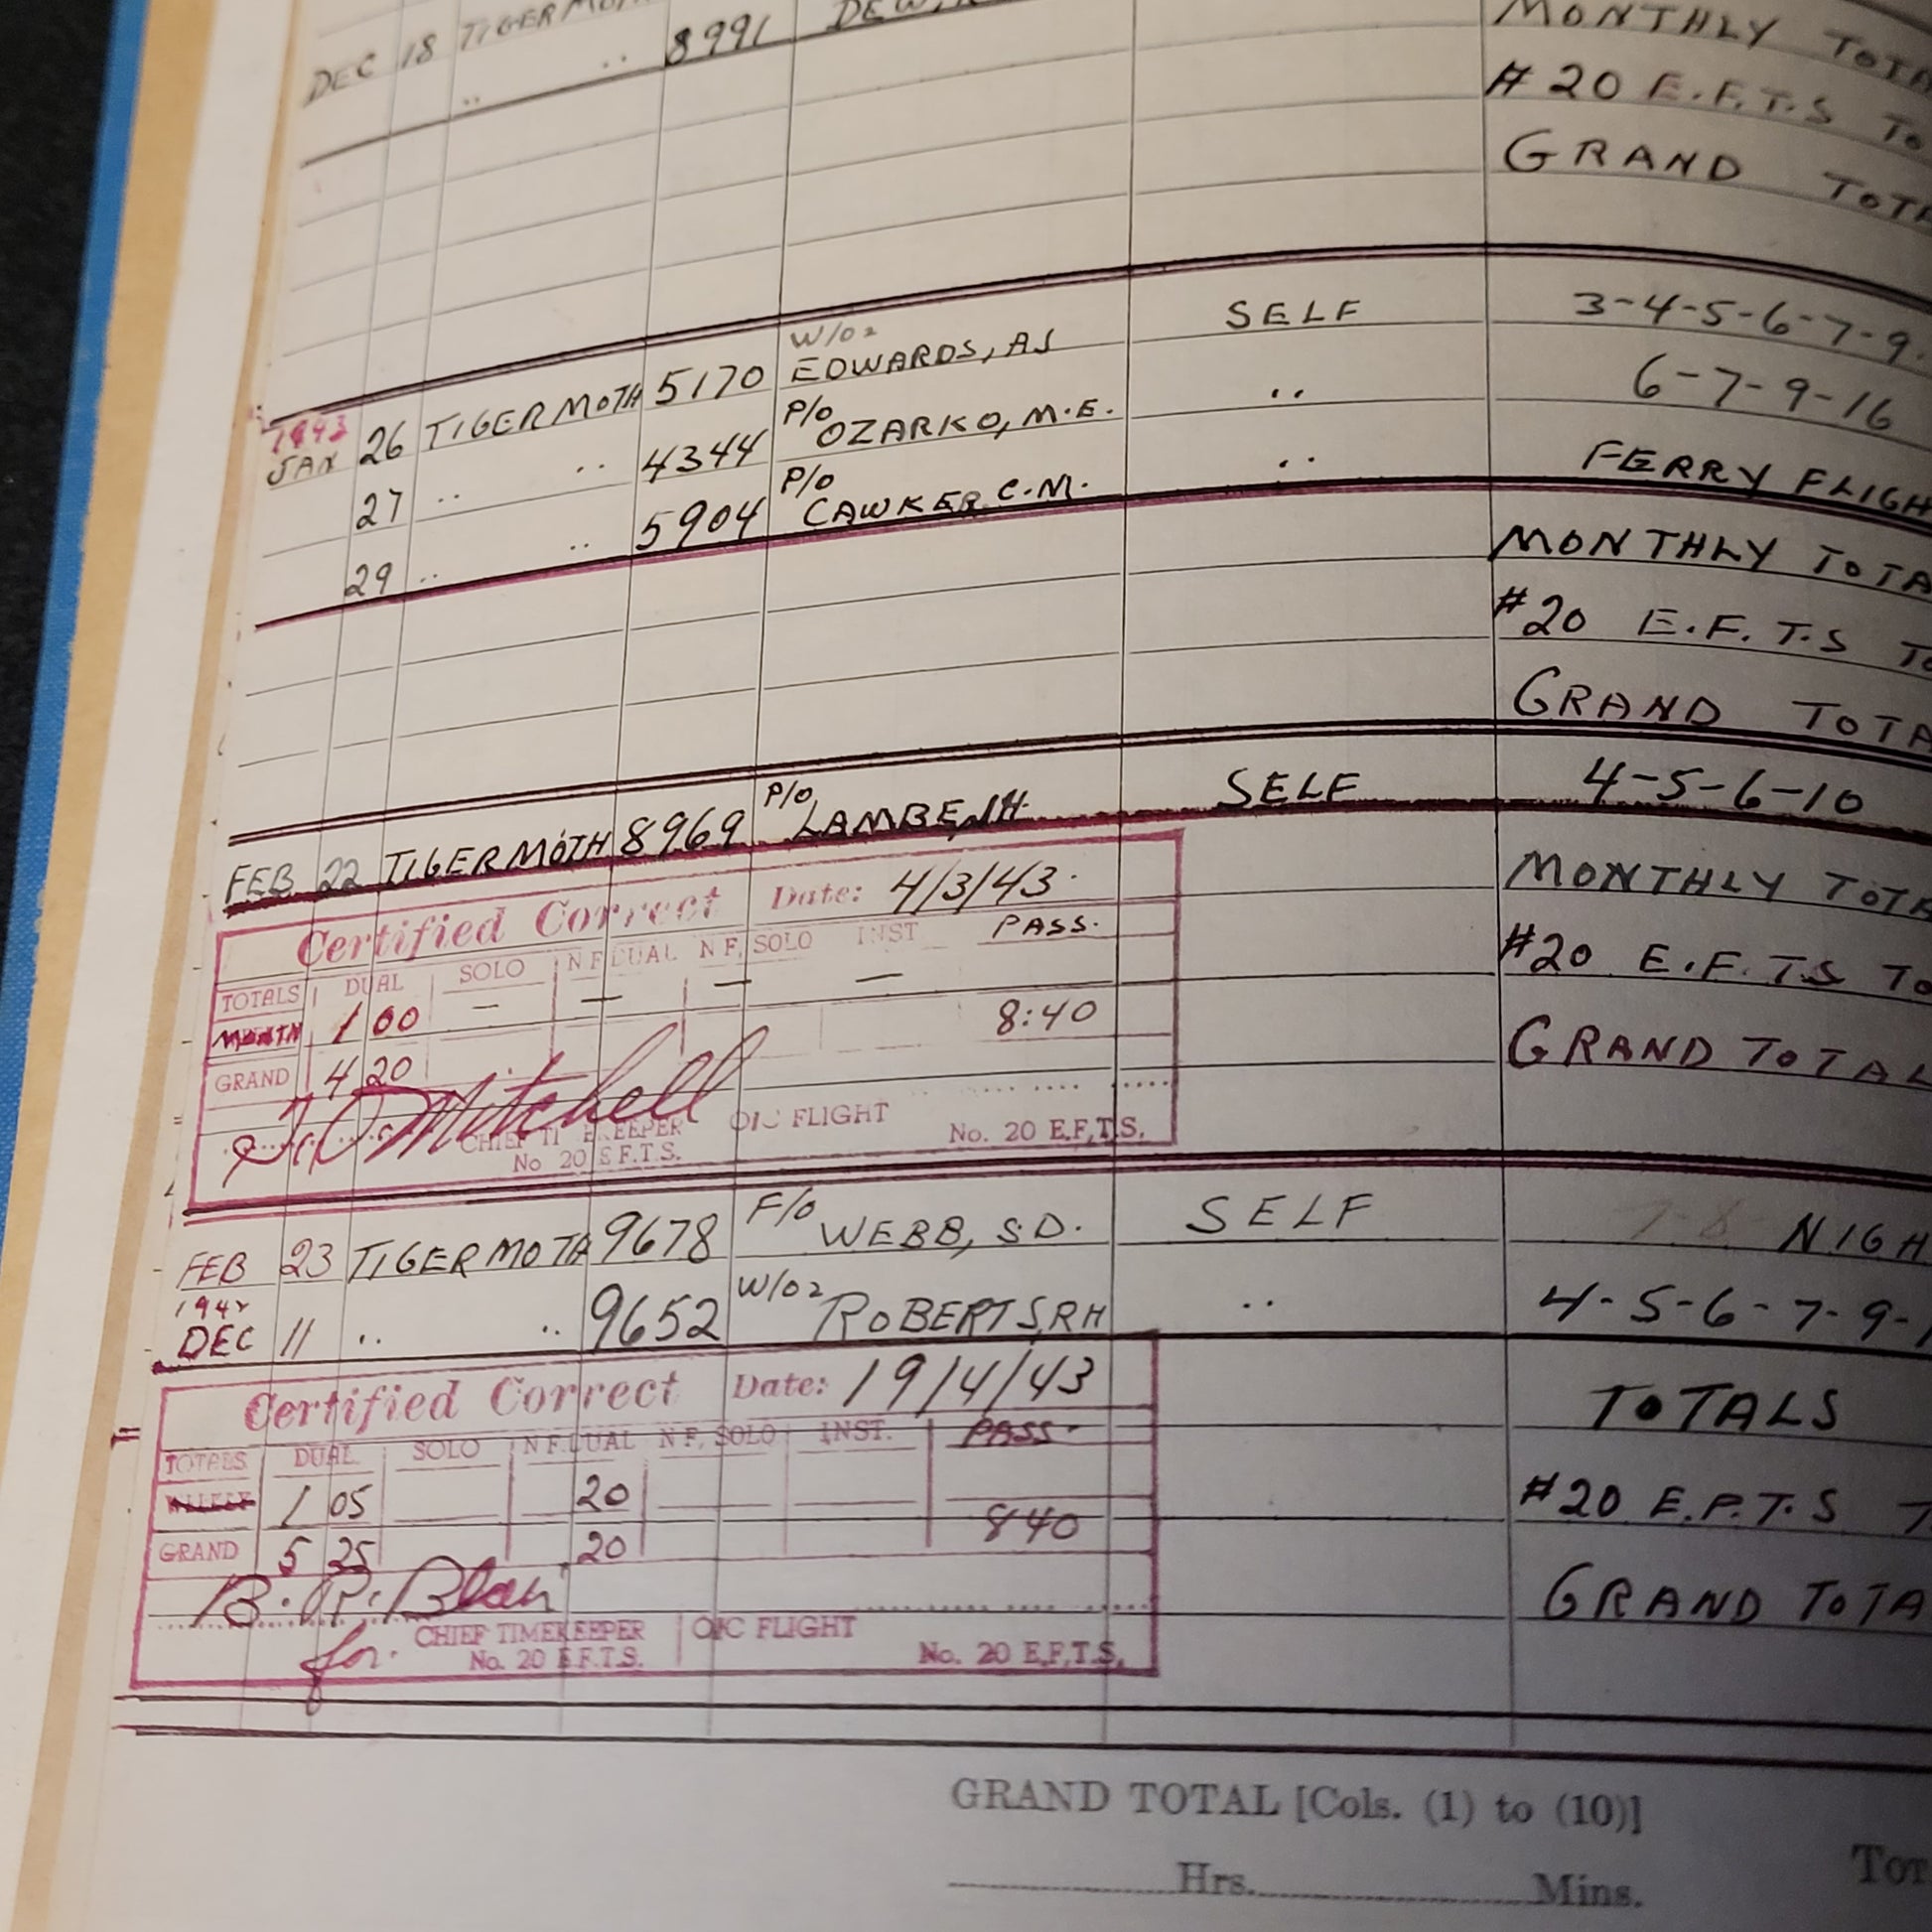 DEC 18 TIGER
.. .. 8991
MONTHLY TOTA
# 20 E.F.T.S To
GRAND TOTA
1943
JAN 26 TIGER MOTH 5170 W/O2 EDWARDS, AJ SELF 3-4-5-6-7-9
27 .. .. 4344 P/O OZARKO, M.E. .. 6-7-9-16
29 .. .. 5904 P/O CAWKER C.M. .. FERRY FLIGH
MONTHLY TOTA
#20 E.F.T.S To
GRAND TOTA
FEB 22 TIGER MOTH 8969 P/O LAMBE, JH. SELF 4-5-6-10
Certified Correct Date: 4/3/43. MONTHLY TOTA
TOTALS DUAL SOLO N F DUAL N F, SOLO INST PASS.
MONTH 1 00 - - - - #20 E.F.T.S To
GRAND 4 20 8:40 GRAND TOTAL
Mitchell
CHIEF TI EKEEPER O/C FLIGHT
No 20 E F.T.S. No. 20 E.F,T.S.
FEB 23 TIGER MOTH 9678 F/O WEBB, S.D. SELF 7-8 NIGH
1942
DEC 11 .. .. 9652 W/O2 ROBERTS, RH .. 4-5-6-7-9-1
Certified Correct Date: 19/4/43 TOTALS
TOTALS DUAL SOLO N F. DUAL N F, SOLO INST. PASS.
1 05 20 #20 E.F.T.S T
GRAND 5 25 20 840 GRAND TOTA
for. CHIEF TIMEKEEPER O/C FLIGHT
No. 20 E.F.T.S. No. 20 E.F,T.S.
GRAND TOTAL [Cols. (1) to (10)]
Hrs. Mins.
Tot